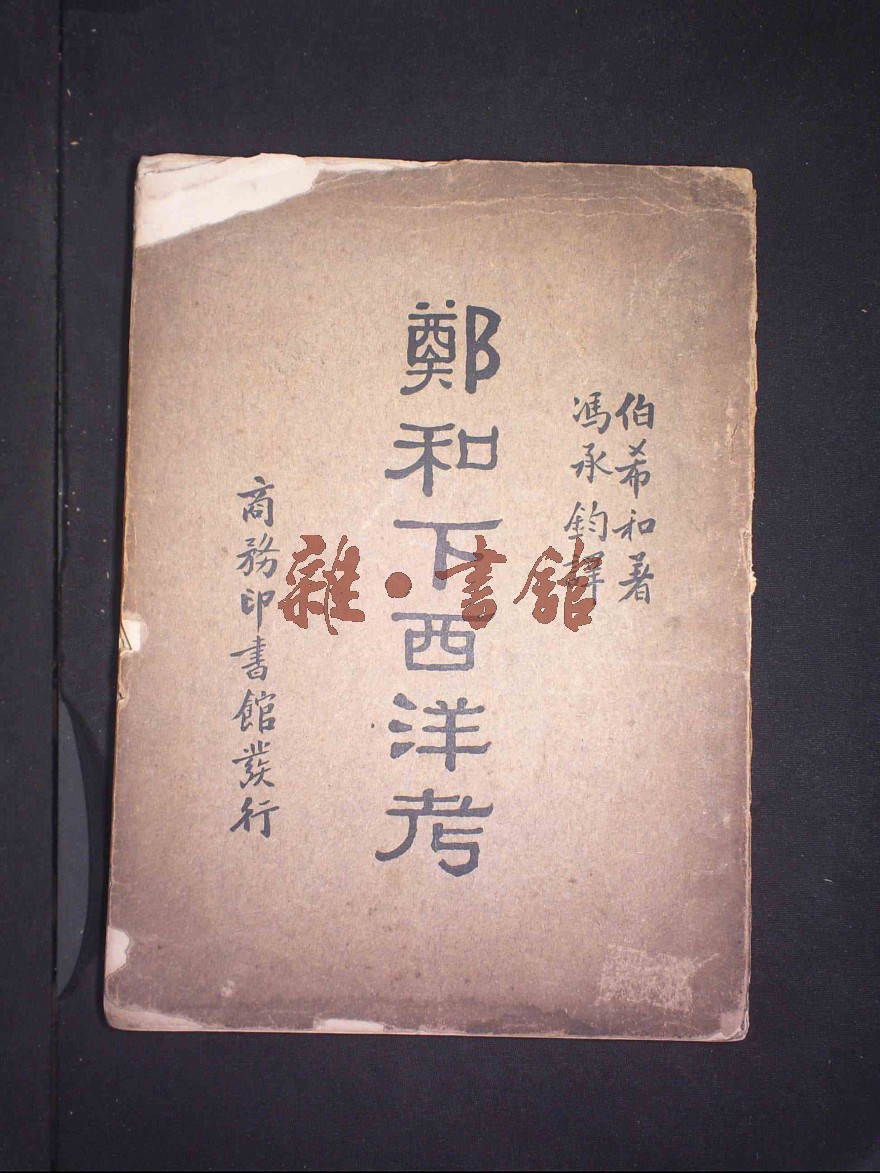 伯希和著
馮承鈞譯
鄭和下西洋考
商務印書館發行
雜·書館